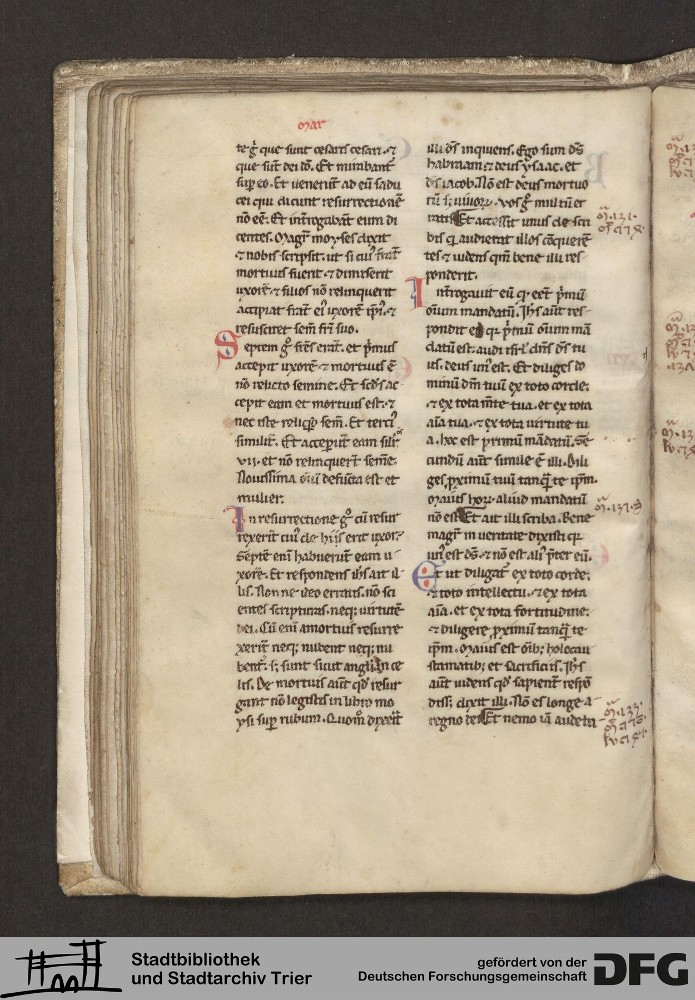 mar
te gͦ que sunt cesaris cesari. ⁊
que sūt dei dō. Et mirabant᷑
suꝑ eo. Et uenerūt ad eū sadu
cei qui dicunt resurrectionē
nō eē. Et int̄rogabāt eum di
centes. Magr̄ moyses dixit
⁊ nobis scripsit. ut si cui᷒ frat̄
mortuus fuerit ⁊ dimiserit
uxorē. ⁊ filios nō relinquerit
accipiat frat̄ ei᷒ uxorē ip̄i᷒. ⁊
resuscitet semē fr̄i suo.
Septem gͦ fr̄es erāt. et p̄mus
accepit uxorē ⁊ mortuus ē
nō relicto semine. Et scd̄s ac
cepit eam et mortuus est. ⁊
nec iste reliq̄t semē. Et terci᷒
similit̄. Et acceperūt eam silr̄
vii. et nō relinquerūt semē.
Nouissima oīū defūcta est et
mulier.
In resurrectione gͦ cū resur
rexerīt cui᷒ de hijs erit uxor.
Septē enī habuerūt eam u
xorē. Et respondens ih̄s ait il
lis. Nonne ideo erratis. nō sci
entes scripturas. neq; uirtutē
dei. Cū enī amortuis resurre
xerīt neq; nubent neq; nu
bent᷑. s; sunt sicut angli in ce
lis. De mortuis aūt qd̄ resur
gant nō legistis in libro mo
ysi suꝑ rubum. Quomͦ dixerit
illi dn̄s inquiens. Ego sum ds̄
habraam ⁊ deus ysaac. et
ds̄ iacob. Nō est deus mortuo
rū s; uiuorꝝ. vos gͦ multū er
ratis. Et accessit unus de scri
bis q̄ audierat illos cōquerē
tes ⁊ uidens qm̄ bene illi res
ponderit.
Int̄rogauit eū q. eēt p̄mū
oīum mandatū. Ih̄s aūt res
pondit ei qꝛ p̄mū oīum mā
datū est. audi isrl̄ dn̄s ds̄ tu
us. deus un᷒ est. Et diliges do
minū dm̄ tuū ex toto corde.
⁊ ex tota mēte tua. et ex tota
aīa tua. ⁊ ex tota uirtute tu
a. hoc est primū mādatū. Se
cundū aūt simile ē illi. Dili
ges ꝓximū tuū tanq̄ te ip̄m.
Maius horꝝ aliud mandatū
nō est. Et ait illi scriba. Bene
magr̄ in ueritate dixisti qꝛ
un᷒ est ds̄. ⁊ nō est ali᷒ p̄ter eū.
Et ut diligat᷑ ex toto corde.
⁊ toto intellectu. ⁊ ex tota
aīa. et ex tota fortitudine.
⁊ diligere ꝓximū tanq̄ te
ip̄m. Maius est oīb; holocau
stomatib; et sacrificiis. Ih̄s
aūt uidens qd̄ sapient᷑ respō
diss; dixit illi. Nō es longe a
regno dei. Et nemo iā audebat
Stadtbibliothek
und Stadtarchiv Trier
gefördert von der
Deutschen Forschungsgemeinschaft
DFG